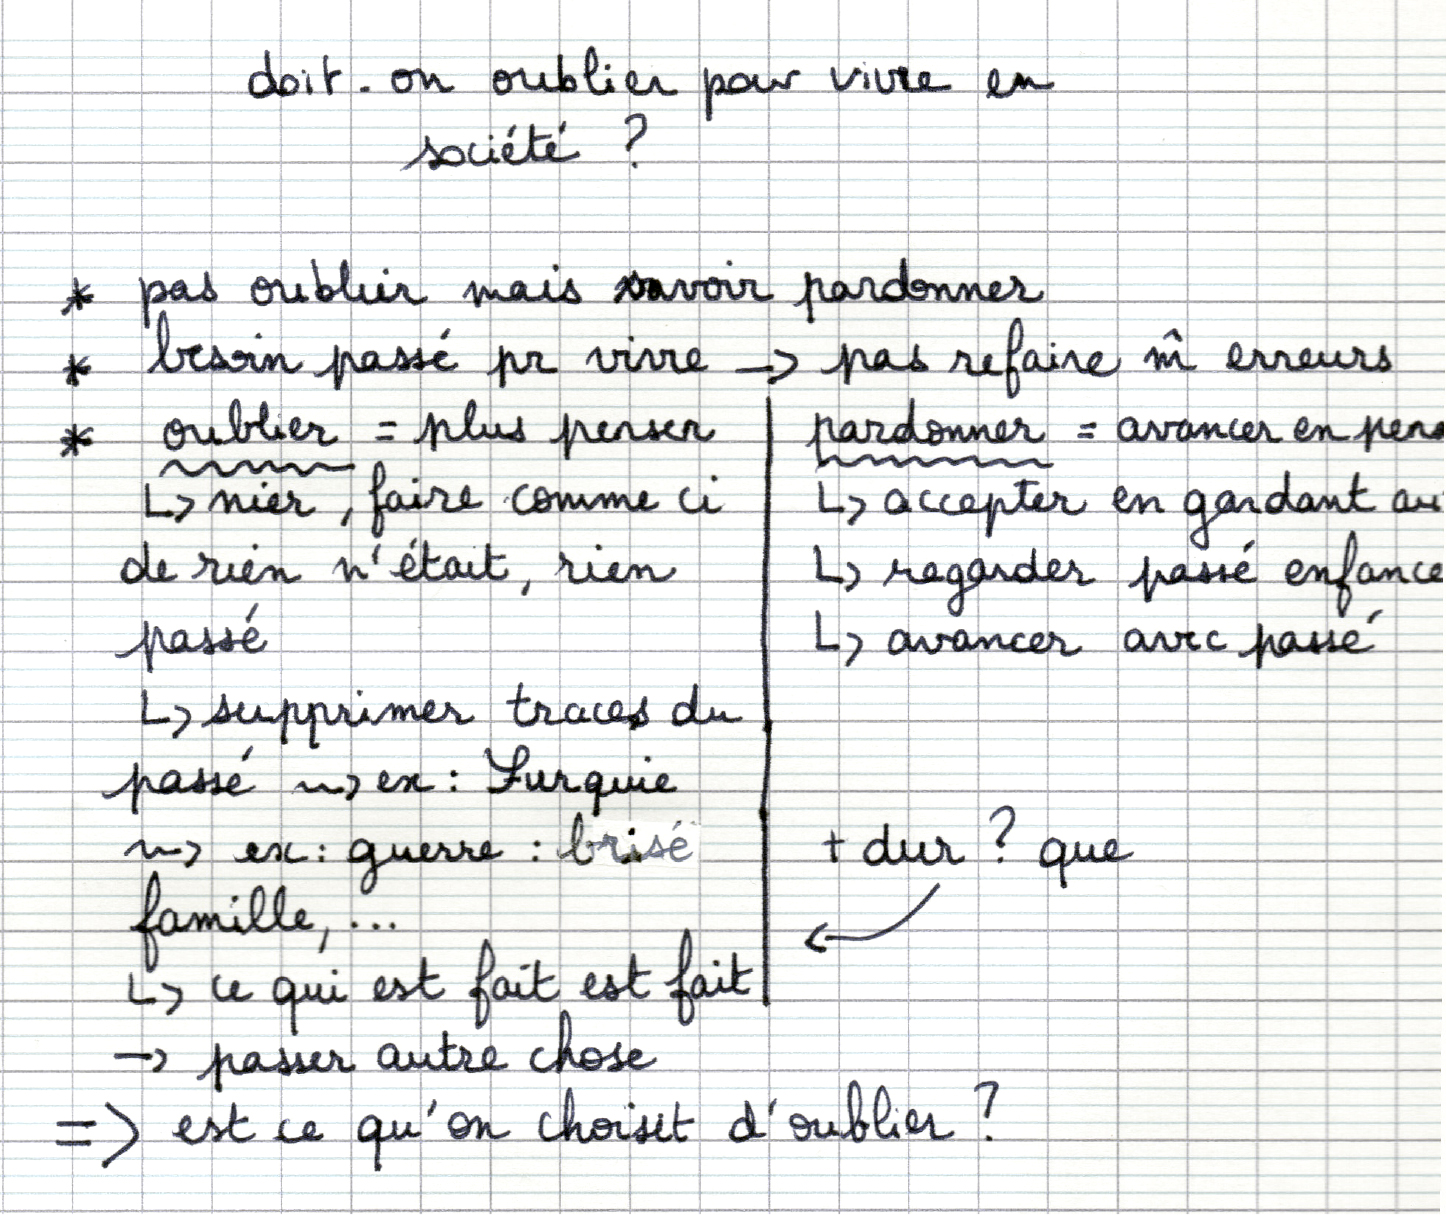 doit-on oublier pour vivre en
société ?
* pas oublier mais savoir pardonner
* besoin passé pr vivre -> pas refaire m̂ erreurs
* oublier = plus penser
↳ nier, faire comme ci
de rien n'était, rien
passé
↳ supprimer traces du
passé ~> ex : Turquie
~> ex : guerre : brisé
famille, ...
↳ ce qui est fait est fait
-> passer autre chose
pardonner = avancer en pens
↳ accepter en gardant au
↳ regarder passé enfance
↳ avancer avec passé
+ dur ? que
=> est ce qu'on choisit d'oublier ?